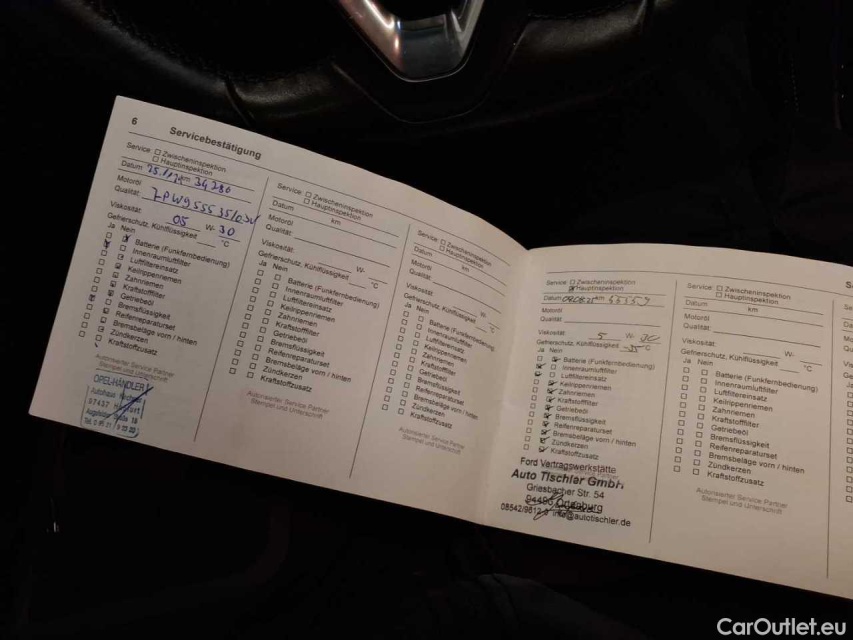 6
Servicebestätigung
Service: Zwischeninspektion
Hauptinspektion
Datum km 34280
Motoröl
Qualität:
Viskosität: 05 W- 30
Gefrierschutz, Kühlflüssigkeit °C
Ja Nein
Batterie (Funkfernbedienung)
Innenraumluftfilter
Luftfiltereinsatz
Keilrippenriemen
Zahnriemen
Kraftstoffilter
Getriebeöl
Bremsflüssigkeit
Reifenreparaturset
Bremsbeläge vorn / hinten
Zündkerzen
Kraftstoffzusatz
Autorisierter Service Partner
Stempel und Unterschrift
OPEL-HÄNDLER
Autohaus
Service: Zwischeninspektion
Hauptinspektion
Datum km
Motoröl
Qualität:
Viskosität: W-
Gefrierschutz, Kühlflüssigkeit °C
Ja Nein
Batterie (Funkfernbedienung)
Innenraumluftfilter
Luftfiltereinsatz
Keilrippenriemen
Zahnriemen
Kraftstoffilter
Getriebeöl
Bremsflüssigkeit
Reifenreparaturset
Bremsbeläge vorn / hinten
Zündkerzen
Kraftstoffzusatz
Autorisierter Service Partner
Stempel und Unterschrift
Service: Zwischeninspektion
Hauptinspektion
Datum km
Motoröl
Qualität:
Viskosität: W-
Gefrierschutz, Kühlflüssigkeit °C
Ja Nein
Batterie (Funkfernbedienung)
Innenraumluftfilter
Luftfiltereinsatz
Keilrippenriemen
Zahnriemen
Kraftstoffilter
Getriebeöl
Bremsflüssigkeit
Reifenreparaturset
Bremsbeläge vorn / hinten
Zündkerzen
Kraftstoffzusatz
Autorisierter Service Partner
Stempel und Unterschrift
Service: Zwischeninspektion
Hauptinspektion
Datum km
Motoröl
Qualität:
Viskosität: 5 W- 30
Gefrierschutz, Kühlflüssigkeit -35 °C
Ja Nein
Batterie (Funkfernbedienung)
Innenraumluftfilter
Luftfiltereinsatz
Keilrippenriemen
Zahnriemen
Kraftstoffilter
Getriebeöl
Bremsflüssigkeit
Reifenreparaturset
Bremsbeläge vorn / hinten
Zündkerzen
Kraftstoffzusatz
Ford Vertragswerkstätte
Auto Tischler GmbH
Griesbacher Str. 54
94496 Ortenburg
08542/9612-0 info@autotischler.de
Service: Zwischeninspektion
Hauptinspektion
Datum km
Motoröl
Qualität:
Viskosität: W-
Gefrierschutz, Kühlflüssigkeit °C
Ja Nein
Batterie (Funkfernbedienung)
Innenraumluftfilter
Luftfiltereinsatz
Keilrippenriemen
Zahnriemen
Kraftstoffilter
Getriebeöl
Bremsflüssigkeit
Reifenreparaturset
Bremsbeläge vorn / hinten
Zündkerzen
Kraftstoffzusatz
Autorisierter Service Partner
Stempel und Unterschrift
CarOutlet.eu